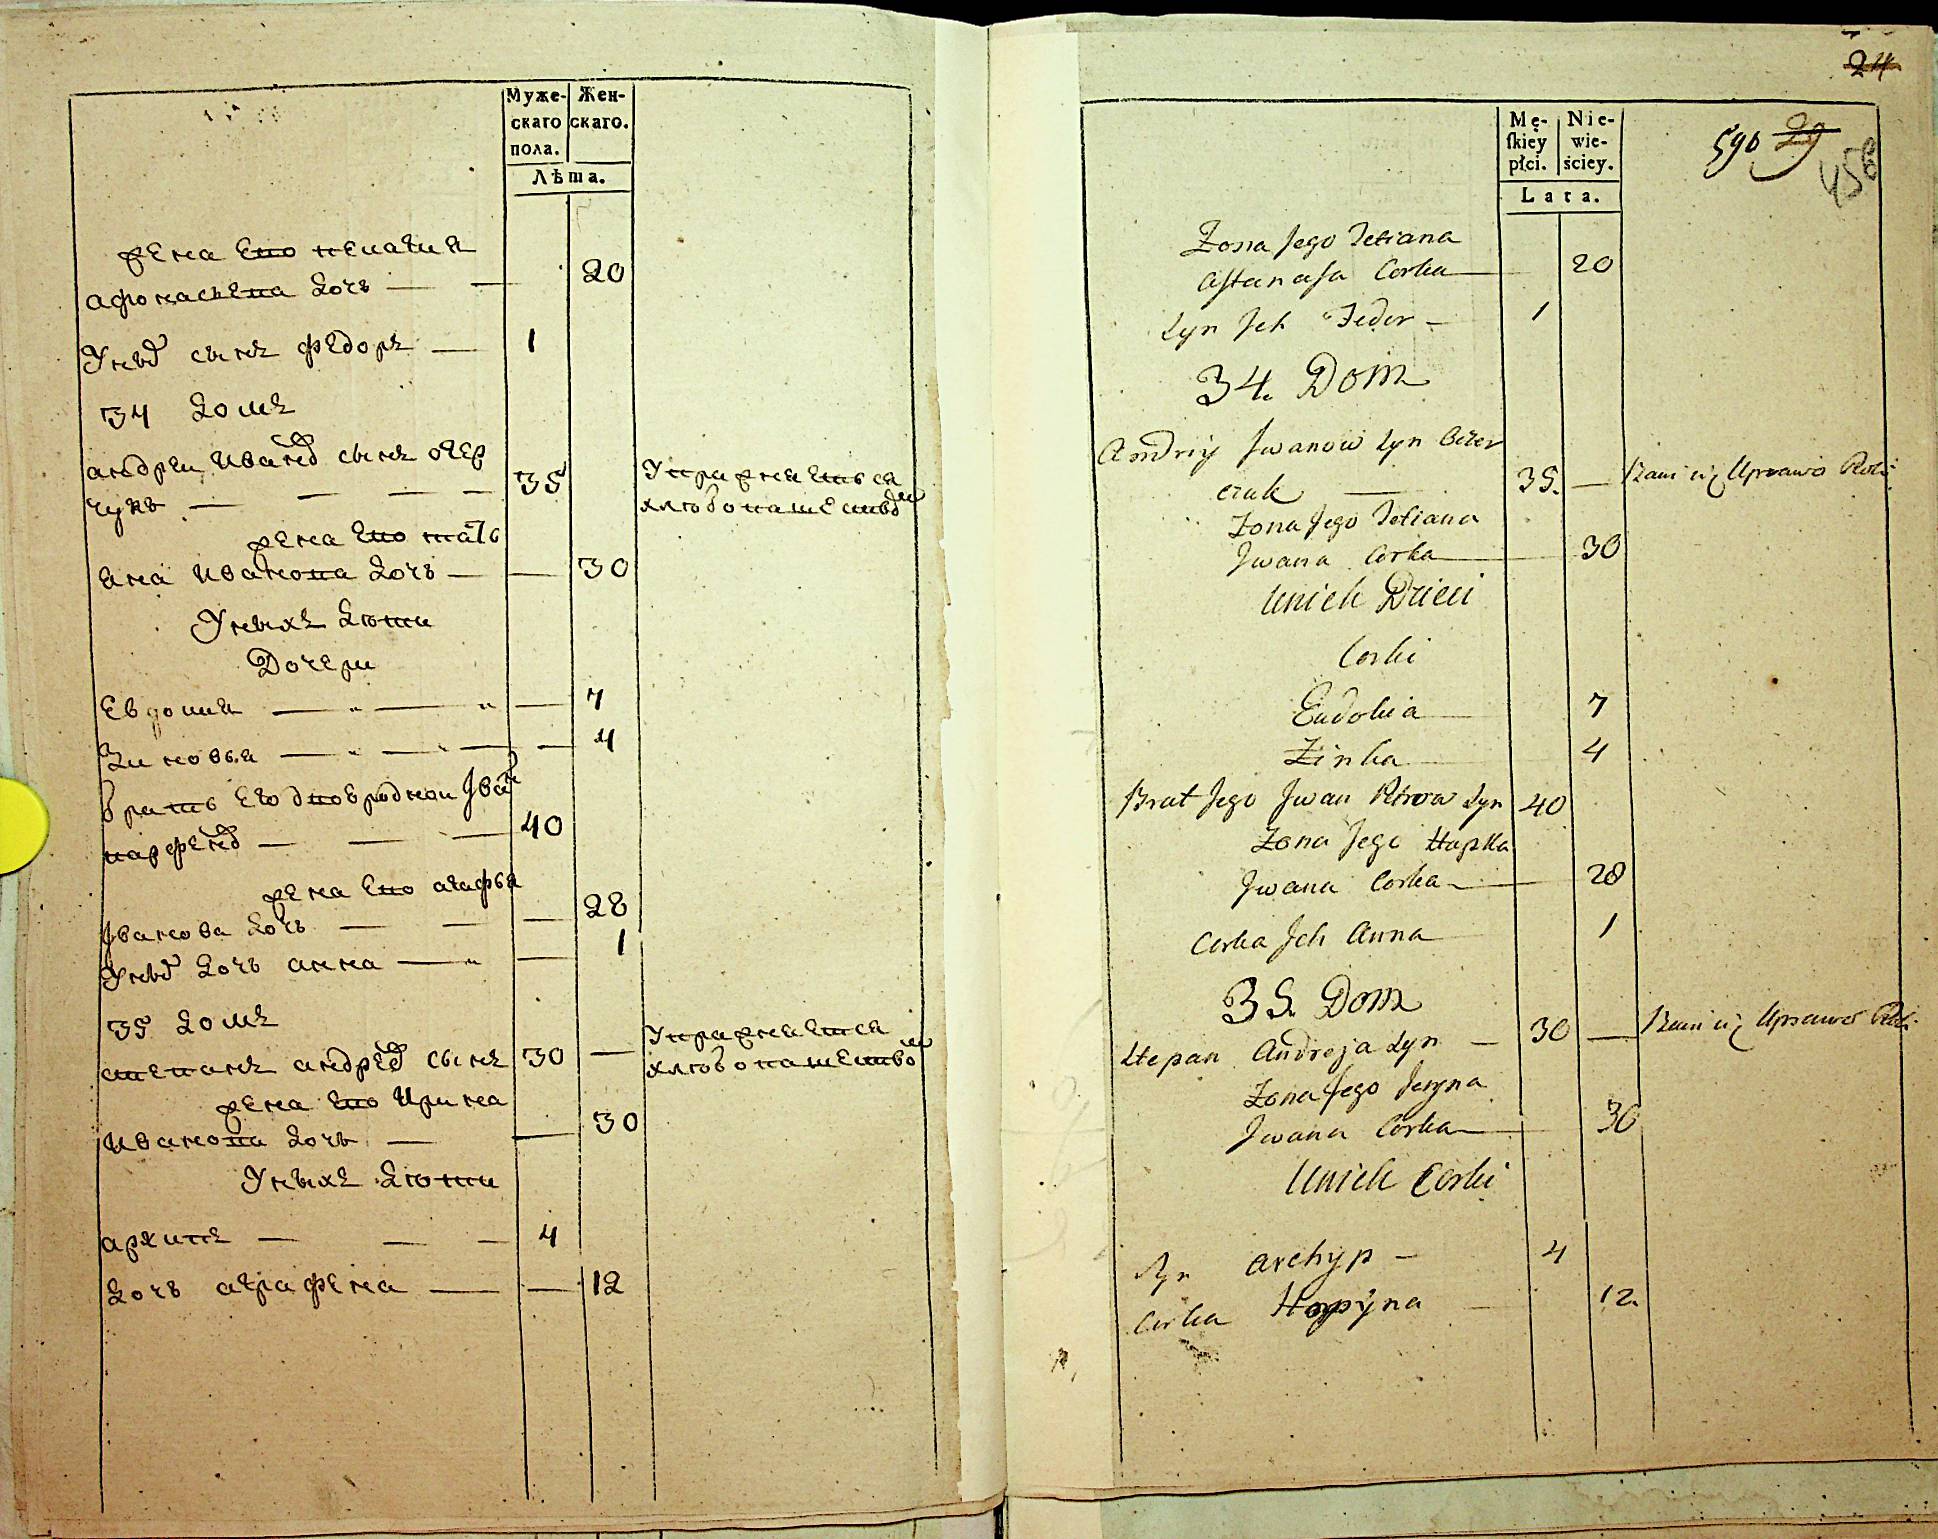 Муже-
скаго
пола.
Жен-
скаго.
Лѣта.
жена его пелагия
афонасьева дочь — — 20
У нихъ сынъ федоръ — 1
34 домъ
андрей Ивановъ сынъ очер
чукъ — — — — 35
Упражняется
хлѣбопашеством
жена его татъ
яна Иванова дочь — — 30
У нихъ дѣти
Дочери
Евдокия — „ — „ — 7
Зиновья — „ — „ — — 4
братъ его Иванъ
парфеновъ — — — 40
жена его агафья
Иванова дочь — — — 28
У нихъ дочь анна — „ — 1
35 домъ
степанъ андреевъ сынъ 30 —
Упражняется
хлѣбопашеством
жена его Ирина
Иванова дочь — — 30
У нихъ дѣти
архипъ — — — 4
дочь аграфена — — 12
24
Mę-
ſkiey
płci.
Nie-
wie-
ściey.
Lata.
590 29
456
Zona Jego Tetiana
Astanasa Corka — 20
Syn Jch Feder — 1
34. Dom
Andriy Jwanow Syn Oczer
czuk — 35. — Bawi się Uprawo Roli
Zona Jego Tetiana
Jwana Corka — 30
Unich Dzieci
Corki
Eudokia — 7
Zinka — 4
Brat Jego Jwan Petrow Syn 40
Zona Jego Hapka
Jwana Corka — 28
Corka Jch Anna — 1
35. Dom
Stepan Andreja Syn — 30 — Bawi się Uprawo Roli
Zona Jego Jeryna
Jwana Corka — 30
Unich Corki
Syn Archyp — 4
Corka Horpyna — 12.